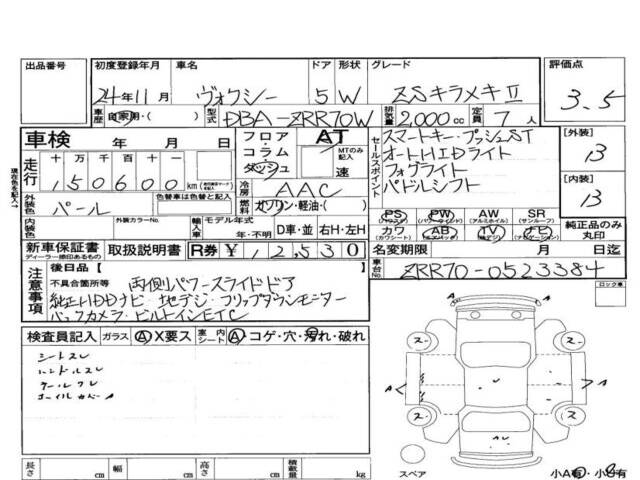 出品番号 初度登録年月 車名 ドア 形状 グレード 評価点
24年11月 ヴォクシー 5 W ZSキラメキⅡ 3.5
車歴 自家用・( ) 型式 DBA-ZRR70W 排気量 2,000cc 定員 7人
車検 年 月 日 フロア AT スマートキー・プッシュST [外装]
コラム MTのみ記入 オートHIDライト 13
走行 十万千百十一 ダッシュ 速 セールスポイント フォグライト
150600km 冷房 AAC パドルシフト [内装]
外装色 パール 色替車は色替と記入 燃料 ガソリン・軽油・( ) 13
内装色 外装カラーNo. 輸入車 モデル年式 年・不明 D車・並 右H・左H PS PW AW SR
(パワステ) (パワーウインド) (アルミホイル) (サンルーフ)
カワ AB TV ナビ 純正品のみ丸印
(カワシート) (エアバッグ)
新車保証書 取扱説明書 R券 ¥12,530 名変期限 月 日迄
ディーラー捺印あるもの
現在色を記入→
注意事項 後日品[ ] 車台No. ZRR70-0523384
不具合箇所等 両側パワースライドドア ロック車
純正HDDナビ・地デジ・フリップダウンモニター
バックカメラ・ビルトインETC
検査員記入 ガラス A X要ス 室内シート A・コゲ・穴・汚れ・破れ
シートスレ
ハンドルスレ
ス ス
A A
ス ス
AU
長さ cm 幅 cm 高さ cm 積載量 kg スペア 小A有・小B有